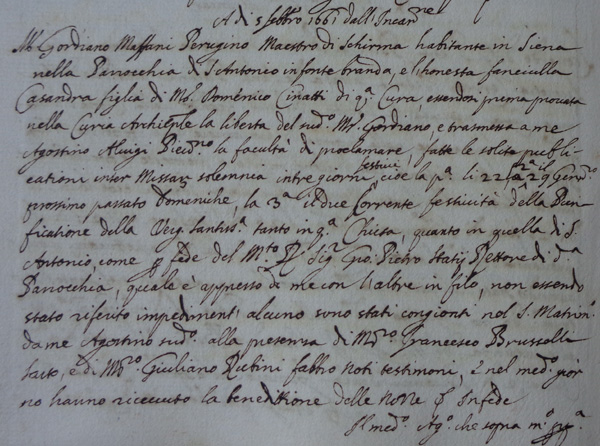 A di 5 febbro 1661 dall Incarne
Mo Gordiano Massani Perugino Maestro di Schirma habitante in Siena
nella Parrochia di S Antonio in fonte branda, e l honesta fanciulla
Casandra figlia di Mo. Domenico di qa. Cura essendosi prima provata
nella Curia Archieple la libertà del sudo. Mo. Gordiano, e trasmessa a me
Agostino Aluigi la facultà di proclamare, fatte le solite publi-
cationi inter Missar solemnia in tre giorni festivi cioè la pa. li 22 la 2a il 29 Genro.
prossimo passato Domeniche, la 3a il due Corrente festività della Puri-
ficatione della Verg Santissa. tanto in qa. Chiesa, quanto in quella di S.
Antonio, come p fede del Mto R Sigr Gio: Pietro Statij Rettore di da.
Parrochia, quale è appresso di me con l altre in filo, non essendo
stato riferito impedimento alcuno sono stati congionti nel S. Matrimo.
da me Agostino sudo. alla presenza di Mro. Francesco Brussolli
Sarto, e di Mro. Giuliano Rutini fabbro noti testimoni, e nel medo. gior
no hanno ricevuto la beneditione delle Nozze p Infede
Il medo. Ago. che sopra mo. pa.